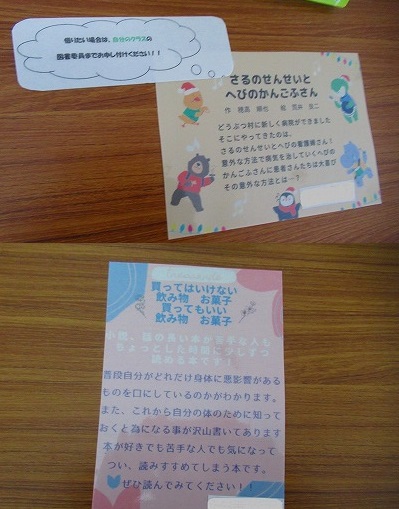 借りたい場合は、自分のクラスの
図書委員までお申し付けください!!
さるのせんせいと
へびのかんごふさん
作 穂高 順也 絵 荒井 良二
どうぶつ村に新しく病院ができました
そこにやってきたのは、
さるのせんせいとへびの看護婦さん!
意外な方法で病気を治していくへびの
かんごふさんに患者さんたちは大喜び
その意外な方法とは…?
買ってはいけない
飲み物 お菓子
買ってもいい
飲み物 お菓子
小説、話の長い本が苦手な人も
ちょっとした時間に少しずつ
読める本です!
普段自分がどれだけ身体に悪影響がある
ものを口にしているのかがわかります。
また、これから自分の体のために知って
おくと為になる事が沢山書いてあります
本が好きでも苦手な人でも気になって
つい、読みすすめてしまう本です。
ぜひ読んでみてください!!